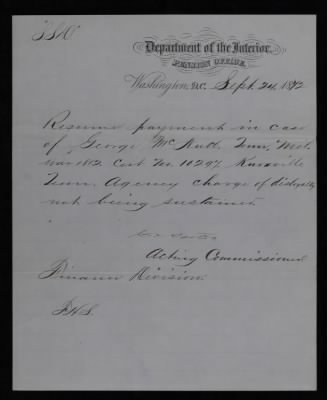 Department of the Interior,
PENSION OFFICE,
Washington, D.C. Sept. 24, 1872
Resume payment in case
of George Mc Nutt, Tenn. Mil.
War 1812. Cert. No. 10297 Knoxville
Tenn. Agency charge of disloyalty
not being sustained
Acting Commissioner
Finance Division.